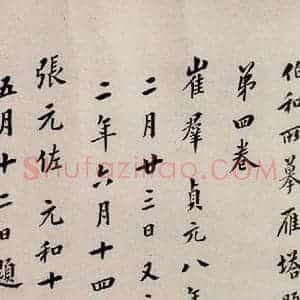 伯和所摹雁塔題
第四卷
崔羣 貞元八年
二月廿三日又
二年六月十四
張元佐 元和十
五月十二日題
Shufazidao.COM